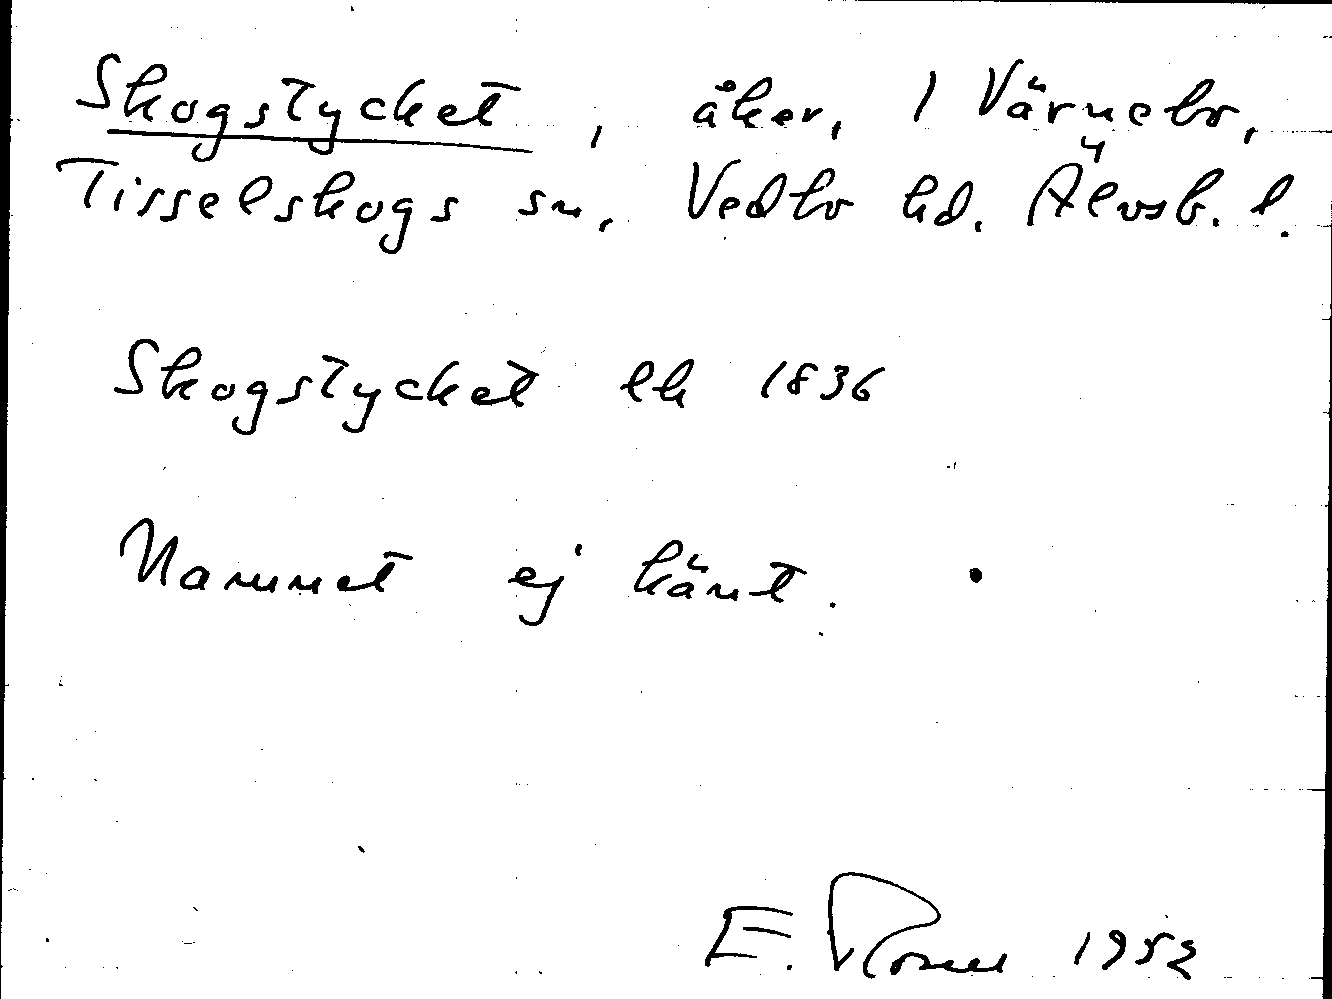 Skogstycket, åker, 1 Värnebo,
Tisselskogs sn, Vedbo hd. Älvsb. l.
Skogstycket lh 1836
Namnet ej känt.
E. Rosell 1952